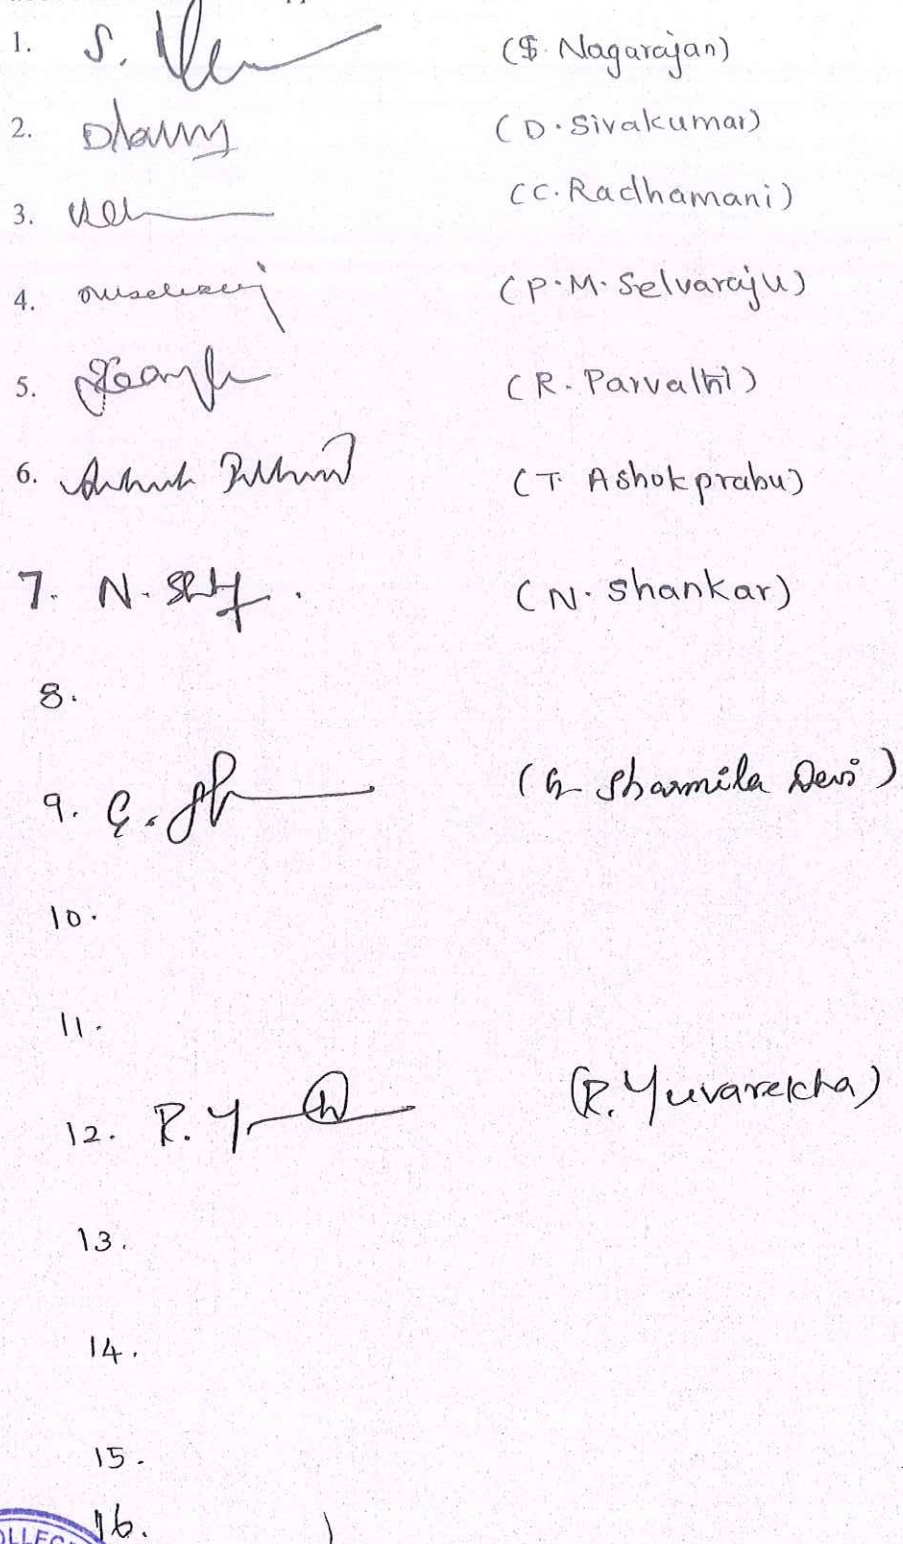 1. S. (S. Nagarajan)
2. (D. Sivakumar)
3. (C. Radhamani)
4. (P.M. Selvaraju)
5. (R. Parvathi)
6. (T. Ashokprabu)
7. N. (N. Shankar)
8.
9. G. (G Sharmila Devi)
10.
11.
12. R. Y (R. Yuvarekha)
13.
14.
15.
16.